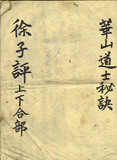 華山道士秘訣
徐子評上下合部